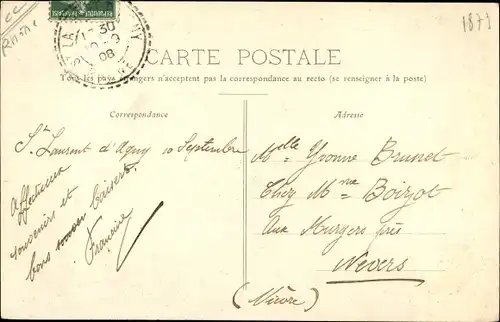 cc
Rhône
1871
RÉPUBLIQUE FRANÇAISE
ST LA
17 30
10 -9
08
CARTE POSTALE
Tous les pays étrangers n'acceptent pas la correspondance au recto (se renseigner à la poste)
Correspondance
Adresse
St Laurent d'Agny 10 Septembre
Affectueux
souvenirs et
bons baisers.
Francine
Melle Yvonne Brunet
Chez Mme Boizot
Aux Murgers près
Nevers
(Nièvre)